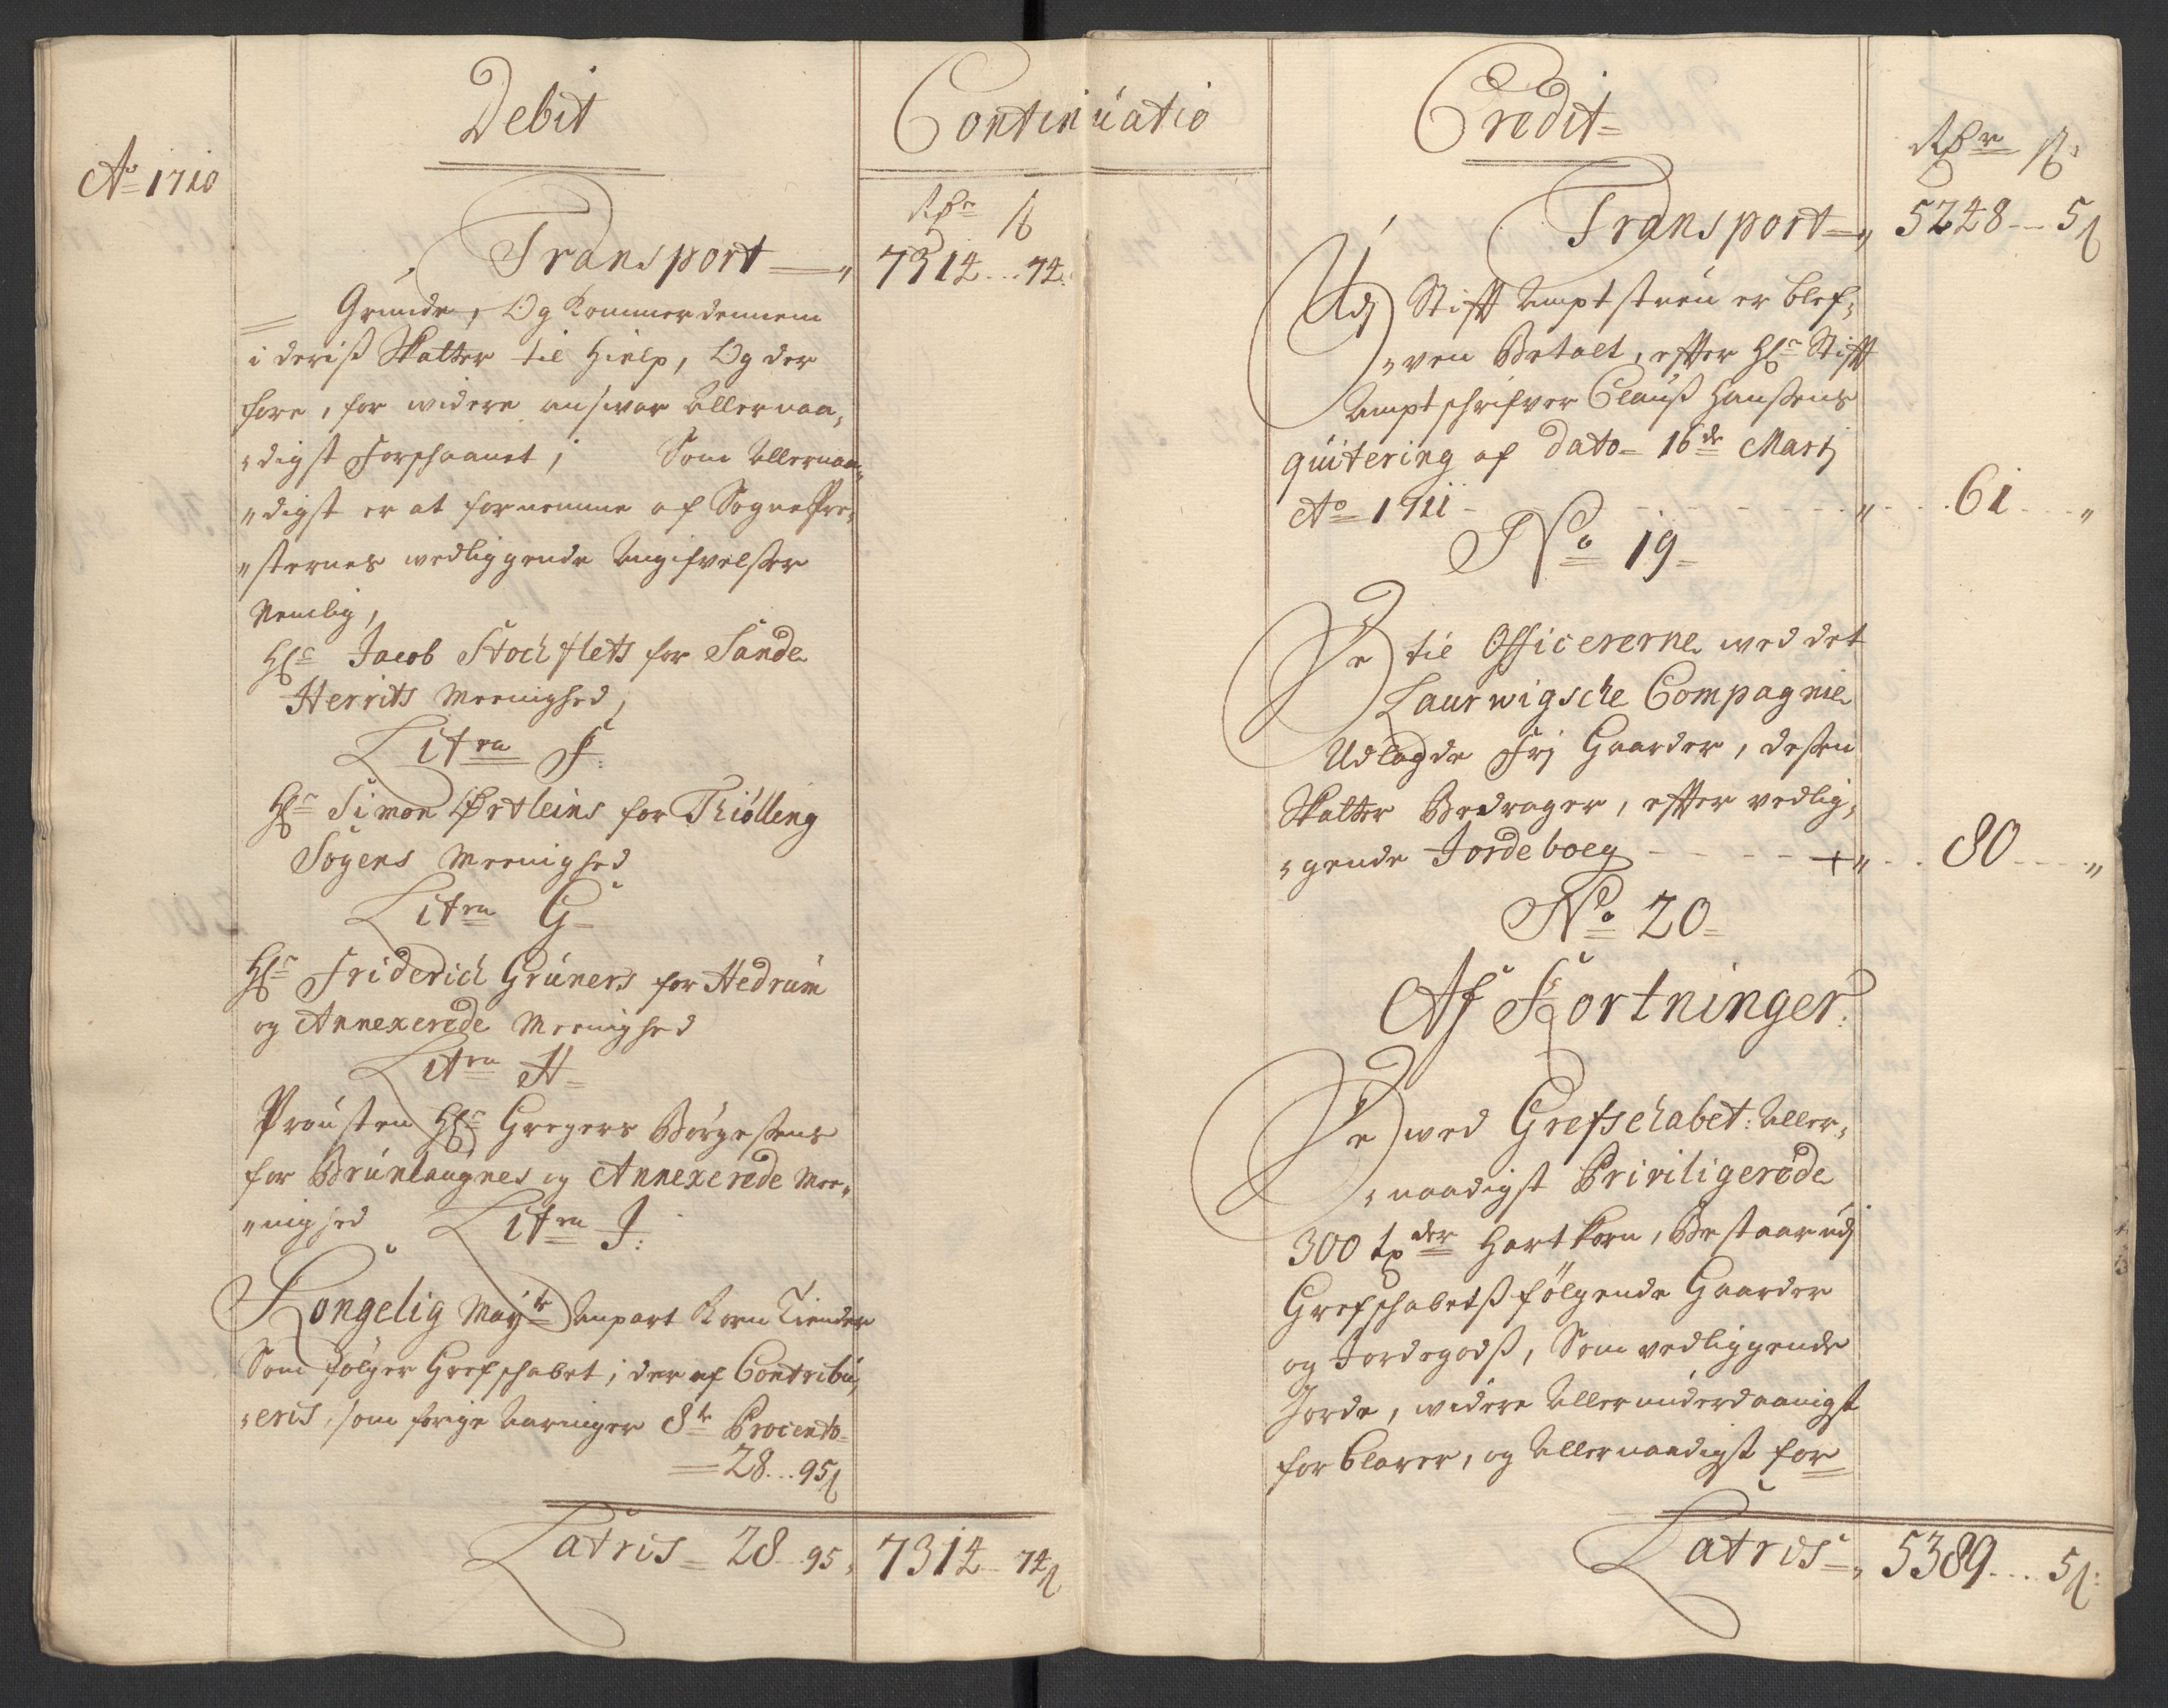 Debit
Continuatio
Ao 1710
Rdr ß
Transport 7314 .. 74
Grunde, Og kommer dennem
i deriß Skatter til Hielp, Og der
fore, for widere answar allernaa,
digst Forschaanet; Som Allernaa,
digst er at fornemme af SognePre,
sternes wedliggende Angifvelßer
Nemlig,
Hr Jacob Stochflets for Sande
Herrits Meenighed,
Litra F:
Hr Simon Ørtleins for Thiølling
Sogens Meenighed
Litra G
Hr Friderich Grüners for Hedrum
og Annexerede Meenighed
Litra H
Prousten Hr Gregers Børgeßens
for Brunlaugnes og Annexerede Mee,
nighed Litra I:
Kongelig Maÿts Anpart Korn Tiender
Som følger Grefschabet; der af Contribu,
eris, som forige Aaringer 8te Procento
28 .. 95ß
Latris 28 .. 95 7314 .. 74ß
Credit
Rdr ß
Transport 5248 .. 5ß
Udj Stifft Ampt stuen er blef,
ven Betalt, effter Hr Stifft
Amptschrifver Clauß Hanßens
quitering af Dato 16de Martj
Ao 1711 61 .. "
No 19
De til Officererne wed det
Laurwigsche Compagnie
Udlagde Frj Gaarder, deßen
Skatter Bedrager, effter wedlig,
gende Jordeboeg 80 .. "
No 20
Af Kortninger:
De wed Grefschabet: Aller,
naadigst Priviligerede
300 tr der Hartkorn, Bestaar udj
Grefschabetß følgende Gaarder
og Jordegodß, Som wedliggende
Jorde, widere Allerunderdaanigst
forklarer, og Allernaadigst for
Latris 5389 .. 5ß: